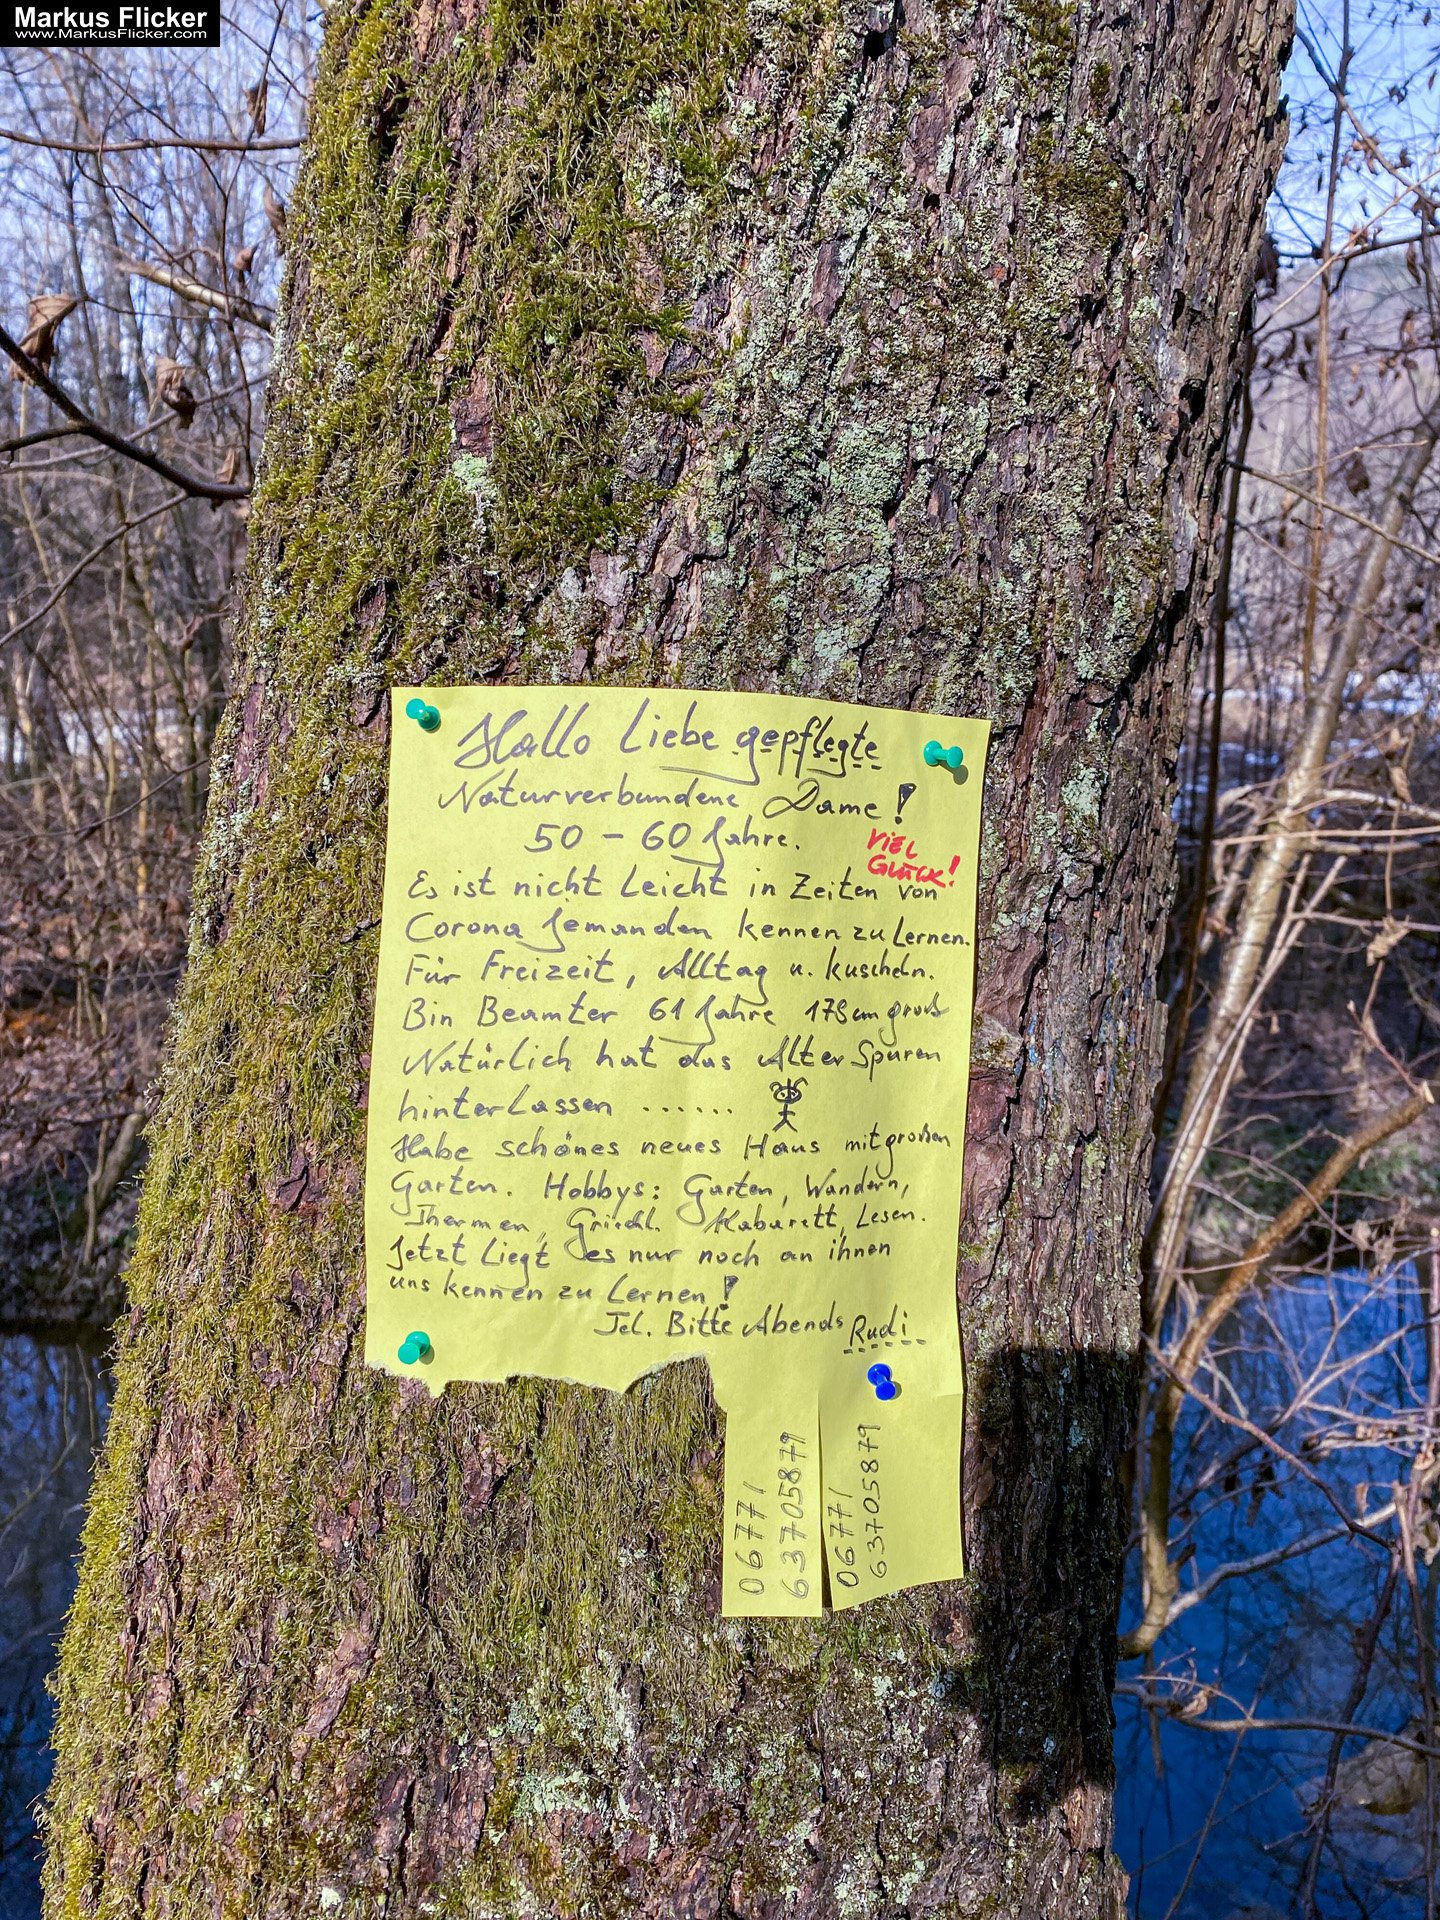 Markus Flicker
www.MarkusFlicker.com
Hallo Liebe gepflegte
Naturverbundene Dame!
50 - 60 Jahre.
VIEL
GLÜCK!
Es ist nicht Leicht in Zeiten von
Corona Jemanden kennen zu Lernen.
Für Freizeit, Alltag u. kuscheln.
Bin Beamter 61 Jahre 178cm groß
Natürlich hat das Alter Spuren
hinterlassen ......
Habe schönes neues Haus mit großen
Garten. Hobbys: Garten, Wandern,
Thermen, Griechl. Kabarett, Lesen.
Jetzt Liegt es nur noch an ihnen
uns kennen zu Lernen!
Tel. Bitte Abends Rudi
06771
63705879
06771
63705879